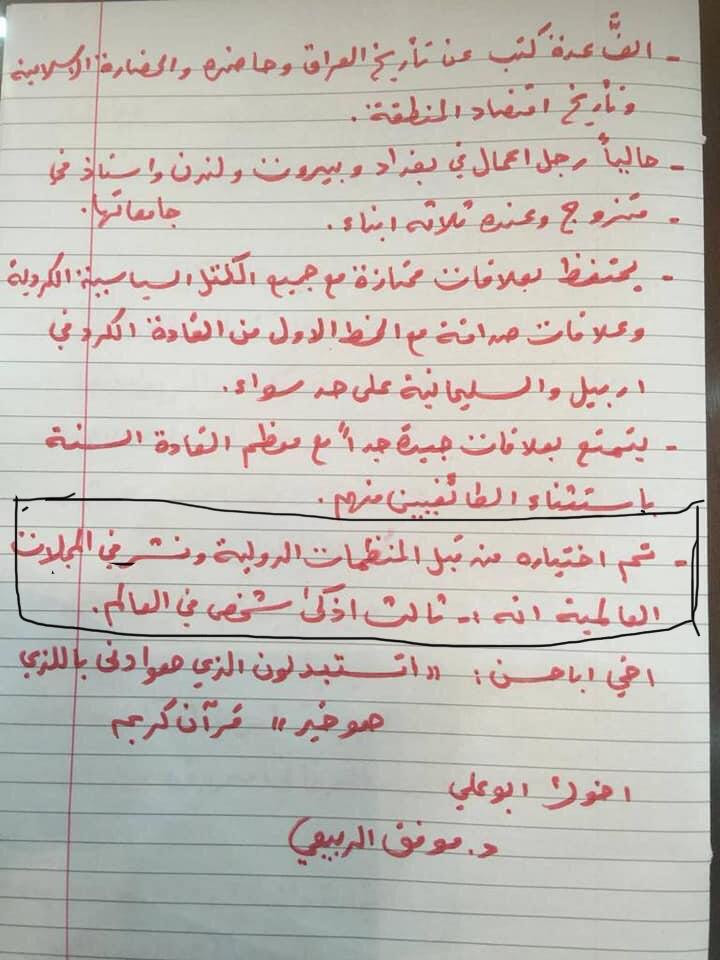 - الفَّ عدة كتب عن تأريخ العراق وحاضره والحضارة الاسلامية
وتأريخ اقتصاد المنطقة.
- حالياً رجل اعمال في بغداد وبيروت ولندن واستاذ في
جامعاتها.
- متزوج وعنده ثلاثه ابناء.
- يحتفظ بعلاقات ممتازة مع جميع الكتل السياسية الكردية
وعلاقات صداقة مع الخط الاول من القادة الكرد في
اربيل والسليمانية على حد سواء.
- يتمتع بعلاقات جيدة جداً مع معظم القادة السنة
باستثناء الطائفيين منهم.
- تم اختياره من قبل المنظمات الدولية ونشر في المجلات
العالمية انه :- ثالث اذكى شخص في العالم.
اخي اباحسن: "اتستبدلون الذي هو ادنى باللذي
هو خير" قرآن كريم
اخوك ابو علي
د. موفق الربيعي